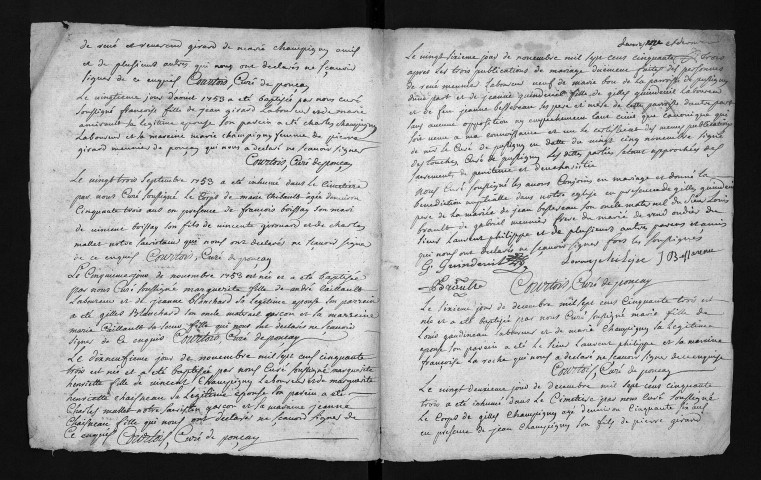 de rené et reverend girard de marie champigny
et de plusieurs autres qui nous ont declarés ne sçavoir
signer de ce enquis Courtois, Curé de ponçay
Le vingtieme jour d'aoust 1753 a eté baptisée par nous curé
soussigné françoise fille de jean girard Laboureur et de marie
sa legitime epouse son parein a eté charles champigny
Laboureur et la mareine marie champigny femme de pierre
girard meunier de ponçay qui nous a declaré ne sçavoir signer
Courtois, Curé de ponçay
Le vingt trois septembre 1753 a eté inhumé dans le Cimetiere
par nous Curé soussigné Le Corps de marie thibault agée d'environ
Cinquante trois ans en presence de françois boissay son mari
de vincent boissay son fils de vincente girouard et de charles
mallet notre sacristain qui nous ont declarés ne sçavoir signer
de ce enquis Courtois, Curé de ponçay
Le Cinquieme jour de novembre 1753 est née et a eté baptisée
par nous Curé soussigné marguerite fille de andré caillault
Laboureur et de jeanne blanchard sa legitime epouse son parrain
a eté gilles Blanchard son oncle maternel garçon et la marraine
marie Caillault sa soeur fille qui nous ont declarés ne sçavoir
signer de ce enquis Courtois Curé de ponçay
Le dixneufieme jour de novembre mil sept cens cinquante
trois est née et a eté baptisée par nous Curé soussigné marguerite
henriette fille de vincent Champigny Laboureur et de marguerite
henriette chaigneau sa Legitime epouse son parein a eté
Charles mallet notre sacristain garçon et sa mareine jeanne
Chaigneau fille qui nous ont declarés ne sçavoir signer de
Ce enquis Courtois, Curé de ponçay
Le vingt sixieme jour de novembre mil sept cens cinquante trois
apres les trois publications de mariage duement faites des personnes
de rené meunier Laboureur de la paroisse de pussigny
d'une part et de jeanne fille de gilles Laboureur
et de feu jeanne bessereau ses pere et mere de cette paroisse d'autre part
sans aucune opposition ny empeschement tant civil que canonique que
soit venu a ma connoissance et vu le certificat des memes publications
de mr le Curé de pussigny en datte du vingt cinq novembre signé
des touches Curé de pussigny les dittes parties s'etant approchées des
sacrements de penitence et d'eucharistie
nous Curé soussigné les avons Conjoins en mariage et donné la
benediction nuptialle dans notre eglise en presence de gilles
pere de la mariée de jean bessereau son oncle maternel du sieur Louis
brault de gabriel meunier frere du marié de rené
sieur Laurent philippe et de plusieurs autres parens et amis
qui nous ont declarés ne sçavoir signer fors les soussignés
J Bessereau
Courtois Curé de ponçay
Le sixieme jour de decembre mil sept cens Cinquante trois est
née et a eté baptisée par nous Curé soussigné marie fille de
Louis gaudineau Laboureur et de marie Champigny sa Legitime
epouse son parein a eté Le sieur Laurent philippe et la mareine
françoise La roche qui nous a declaré ne sçavoir signer de ce enquise
Courtois, Curé de ponçay
Le vingt deuxieme jour de decembre mil sept cens cinquante
trois a eté inhumé dans Le Cimetiere par nous Curé soussigné
Le Corps de gilles Champigny agé d'environ Cinquante six ans
en presence de jean Champigny son fils de pierre girard